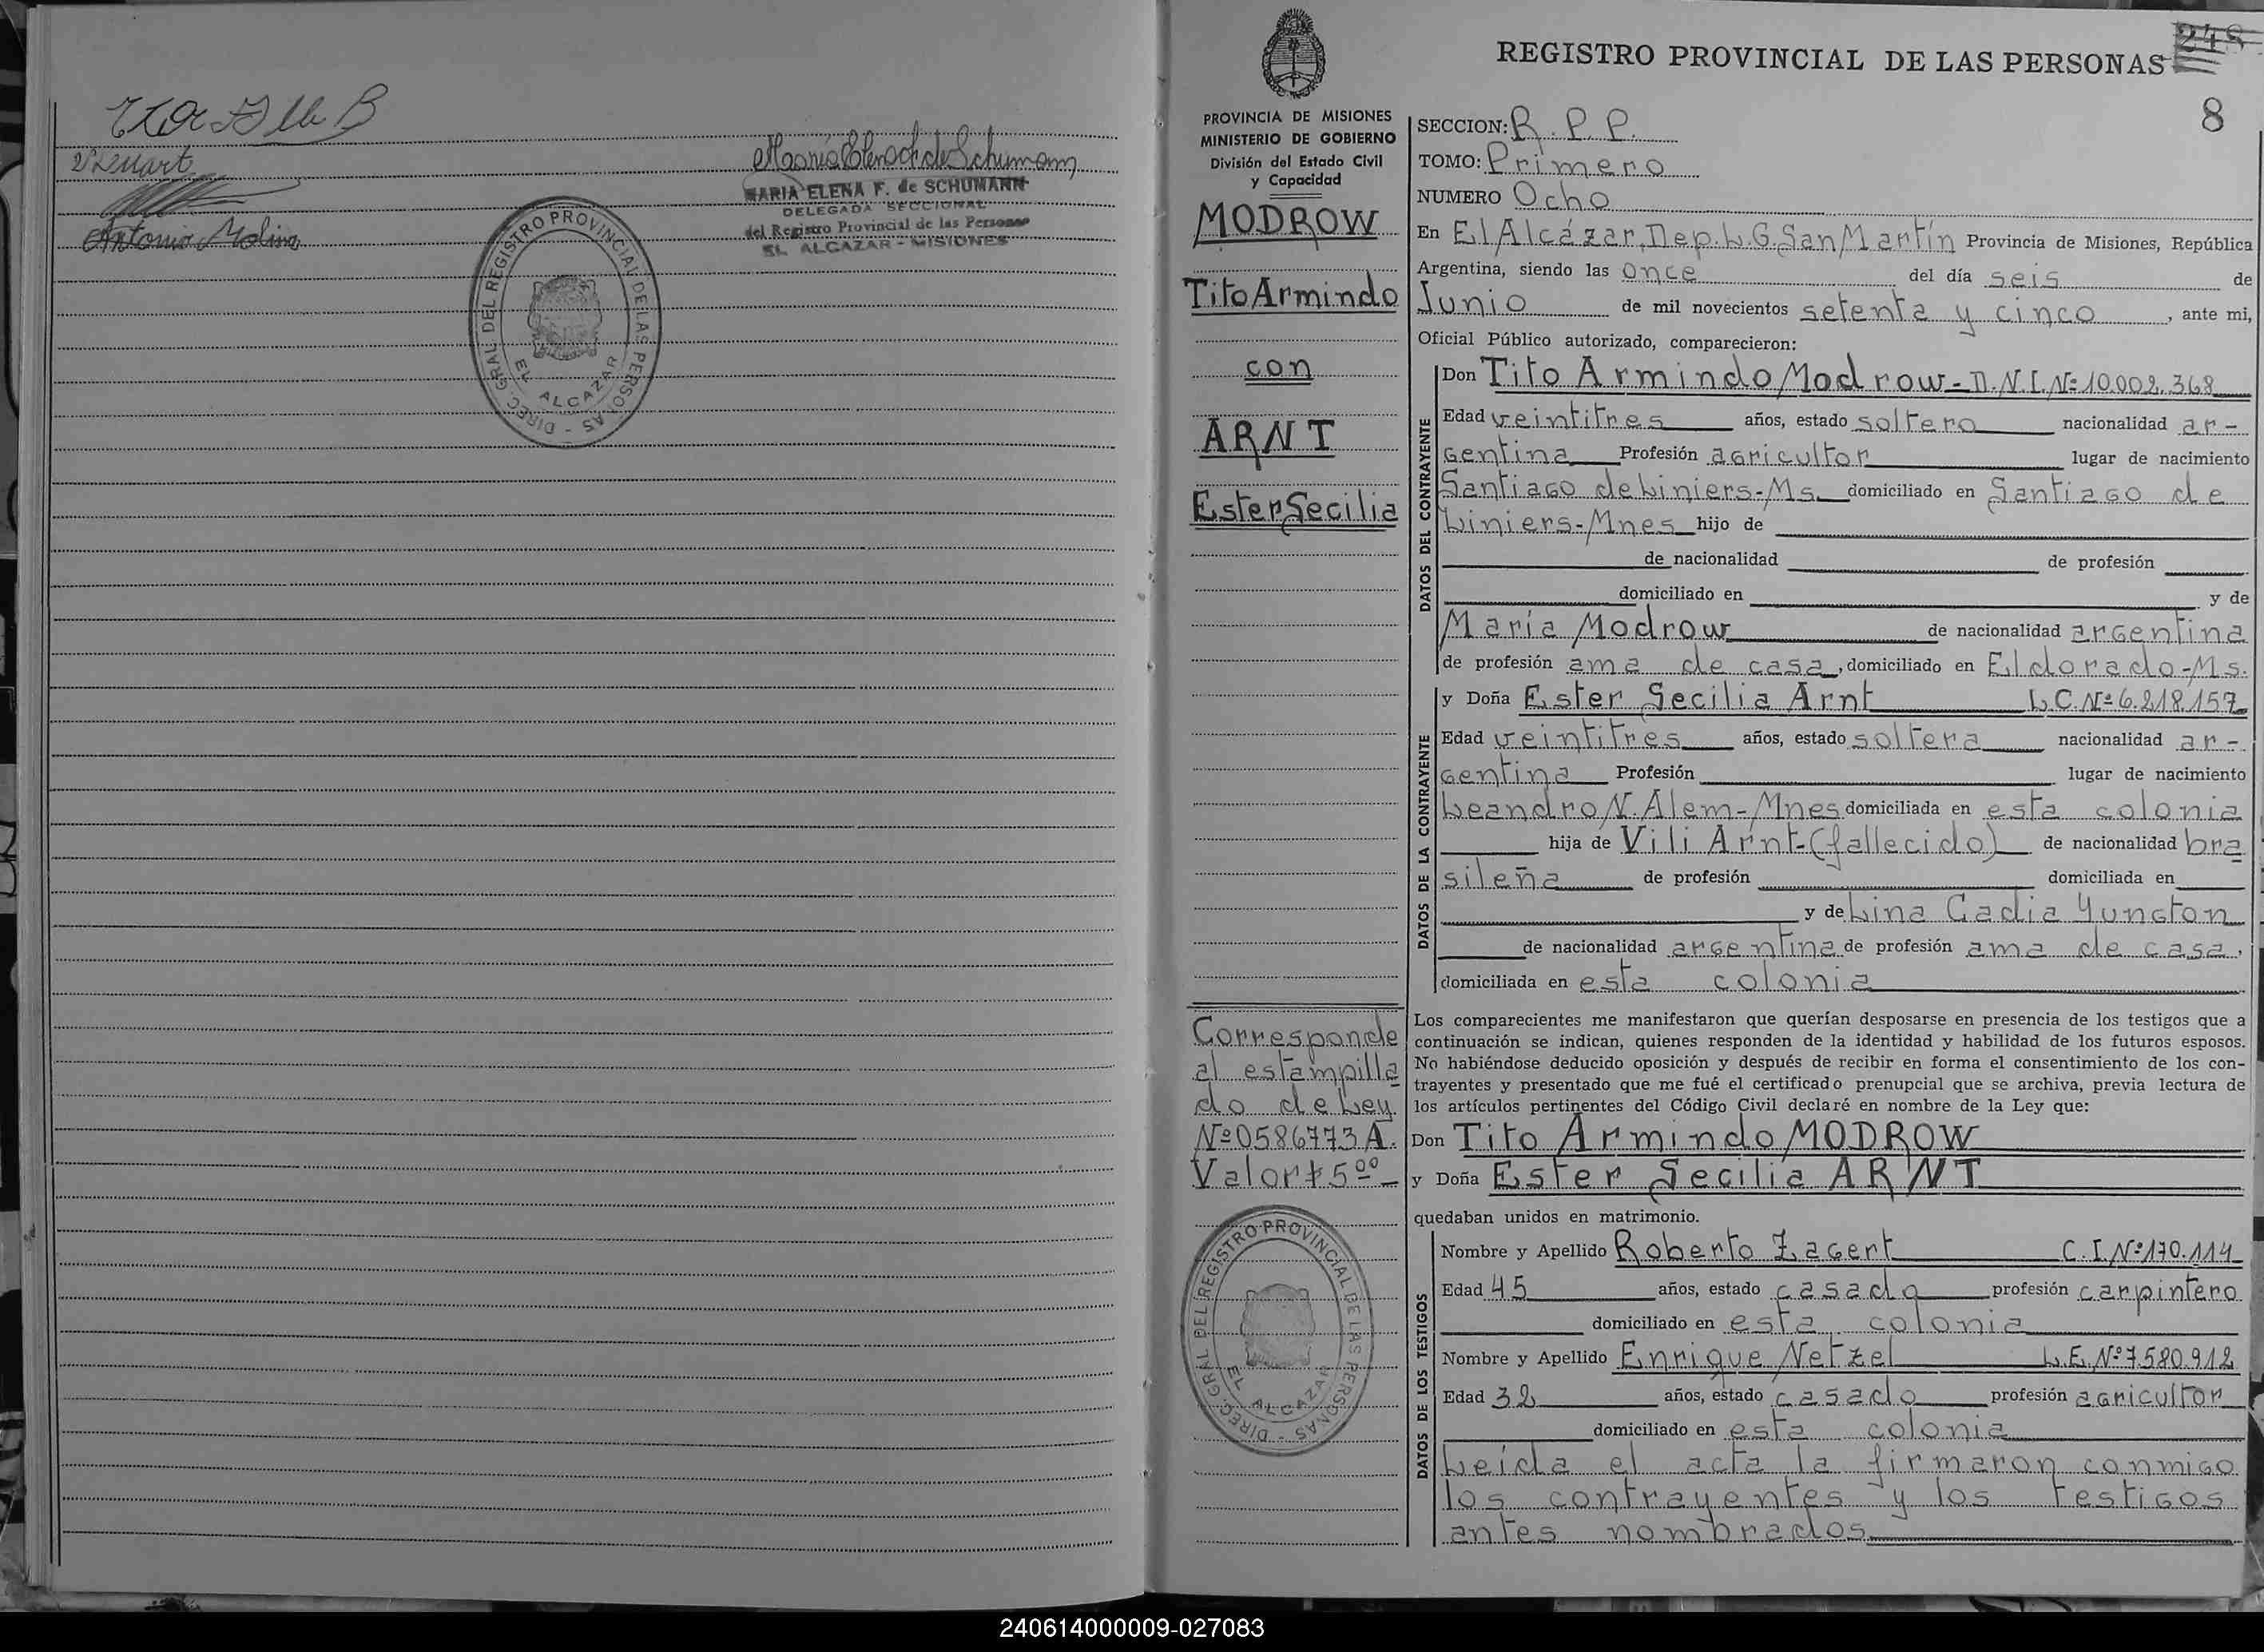 Antonio Molina
MARIA ELENA F. de SCHUMANN
DELEGADA SECCIONAL
del Registro Provincial de las Personas
EL ALCAZAR - MISIONES
DIREC. GRAL DEL REGISTRO PROVINCIAL DE LAS PERSONAS -
EL ALCAZAR
REGISTRO PROVINCIAL DE LAS PERSONAS
248
8
PROVINCIA DE MISIONES
MINISTERIO DE GOBIERNO
División del Estado Civil
y Capacidad
MODROW
Tito Armindo
con
ARNT
Ester Secilia
Corresponde
al estampilla
do de Ley
Nº 0586773 A.
Valor $ 5ºº
DIREC. GRAL DEL REGISTRO PROVINCIAL DE LAS PERSONAS -
EL ALCAZAR
SECCION: R. P. P.
TOMO: Primero
NUMERO Ocho
En El Alcázar, Dep. L. G. San Martín Provincia de Misiones, República
Argentina, siendo las once del día seis de
Junio de mil novecientos setenta y cinco, ante mi,
Oficial Público autorizado, comparecieron:
DATOS DEL CONTRAYENTE
Don Tito Armindo Modrow - D.N.I. Nº 10.002.368
Edad veintitres años, estado soltero nacionalidad ar-
gentina Profesión agricultor lugar de nacimiento
Santiago de Liniers-Ms. domiciliado en Santiago de
Liniers-Mnes hijo de
de nacionalidad de profesión
domiciliado en y de
María Modrow de nacionalidad argentina
de profesión ama de casa, domiciliado en Eldorado-Ms.
DATOS DE LA CONTRAYENTE
y Doña Ester Secilia Arnt L.C. Nº 6.218.157
Edad veintitres años, estado soltera nacionalidad ar-
gentina Profesión lugar de nacimiento
Leandro N. Alem-Mnes domiciliada en esta colonia
hija de Vili Arnt-(fallecido) de nacionalidad bra
sileña de profesión domiciliada en
y de Lina Cadia Yungton
de nacionalidad argentina de profesión ama de casa,
domiciliada en esta colonia
Los comparecientes me manifestaron que querían desposarse en presencia de los testigos que a
continuación se indican, quienes responden de la identidad y habilidad de los futuros esposos.
No habiéndose deducido oposición y después de recibir en forma el consentimiento de los con-
trayentes y presentado que me fué el certificado prenupcial que se archiva, previa lectura de
los artículos pertinentes del Código Civil declaré en nombre de la Ley que:
Don Tito Armindo MODROW
y Doña Ester Secilia ARNT
quedaban unidos en matrimonio.
DATOS DE LOS TESTIGOS
Nombre y Apellido Roberto Zagert C.I. Nº 170.114
Edad 45 años, estado casado profesión carpintero
domiciliado en esta colonia
Nombre y Apellido Enrique Netzel L.E. Nº 7.580.912
Edad 32 años, estado casado profesión agricultor
domiciliado en esta colonia
Leída el acta la firmaron conmigo
los contrayentes y los testigos
antes nombrados
240614000009-027083